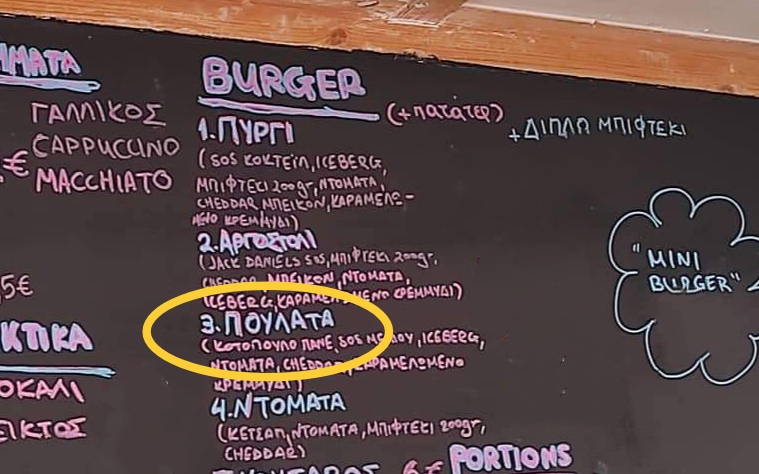 ΜΜΑΤΑ
ΓΑΛΛΙΚΟΣ
CAPPUCCINO
€
MACCHIATO
5€
ΚΤΙΚΑ
ΟΚΑΛΙ
ΕΙΚΤΟΣ
BURGER
(+ΠΑΤΑΤΕΣ)
+ΔΙΠΛΟ ΜΠΙΦΤΕΚΙ
1.ΠΥΡΓΙ
(SOS ΚΟΚΤΕΙΛ, ICEBERG,
ΜΠΙΦΤΕΚΙ 200gr, ΝΤΟΜΑΤΑ,
CHEDDAR ΜΠΕΙΚΟΝ, ΚΑΡΑΜΕΛΩ-
ΜΕΝΟ ΚΡΕΜΜΥΔΙ)
2.ΑΡΓΟΣΤΟΛΙ
(JACK DANIELS SOS, ΜΠΙΦΤΕΚΙ 200gr,
CHEDDAR, ΜΠΕΙΚΟΝ, ΝΤΟΜΑΤΑ,
ICEBERG, ΚΑΡΑΜΕΛΩΜΕΝΟ ΚΡΕΜΜΥΔΙ)
3.ΠΟΥΛΑΤΑ
(ΚΟΤΟΠΟΥΛΟ ΠΑΝΕ, SOS ICEBERG,
ΝΤΟΜΑΤΑ, CHEDDAR, ΚΑΡΑΜΕΛΩΜΕΝΟ
ΚΡΕΜΜΥΔΙ)
4.ΝΤΟΜΑΤΑ
(ΚΕΤΣΑΠ, ΝΤΟΜΑΤΑ, ΜΠΙΦΤΕΚΙ 200gr,
CHEDDAR)
6€ PORTIONS
"MINI
BURGER"